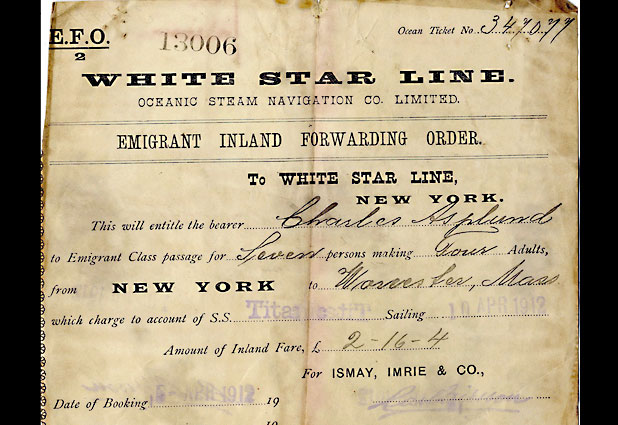 E.F.O.
2
13006
Ocean Ticket No. 347077
WHITE STAR LINE.
OCEANIC STEAM NAVIGATION CO. LIMITED.
EMIGRANT INLAND FORWARDING ORDER.
To WHITE STAR LINE,
NEW YORK.
This will entitle the bearer Charles Asplund
to Emigrant Class passage for Seven persons making Four Adults,
from NEW YORK to Worcester, Mass
which charge to account of S.S. Titanic Sailing 10 APR 1912
Amount of Inland Fare, £ 2-16-4
For ISMAY, IMRIE & CO.,
Date of Booking APR 1912 19